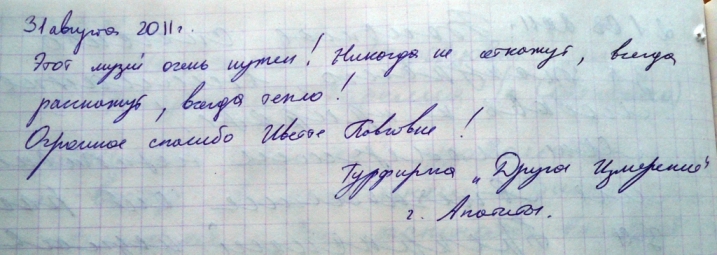 31 августа 2011 г.
Этот музей очень нужен! Никогда не откажут, всегда
расскажут, всегда тепло!
Огромное спасибо Павловне!
Турфирма „Друга Измерение"
г. Апатиты.